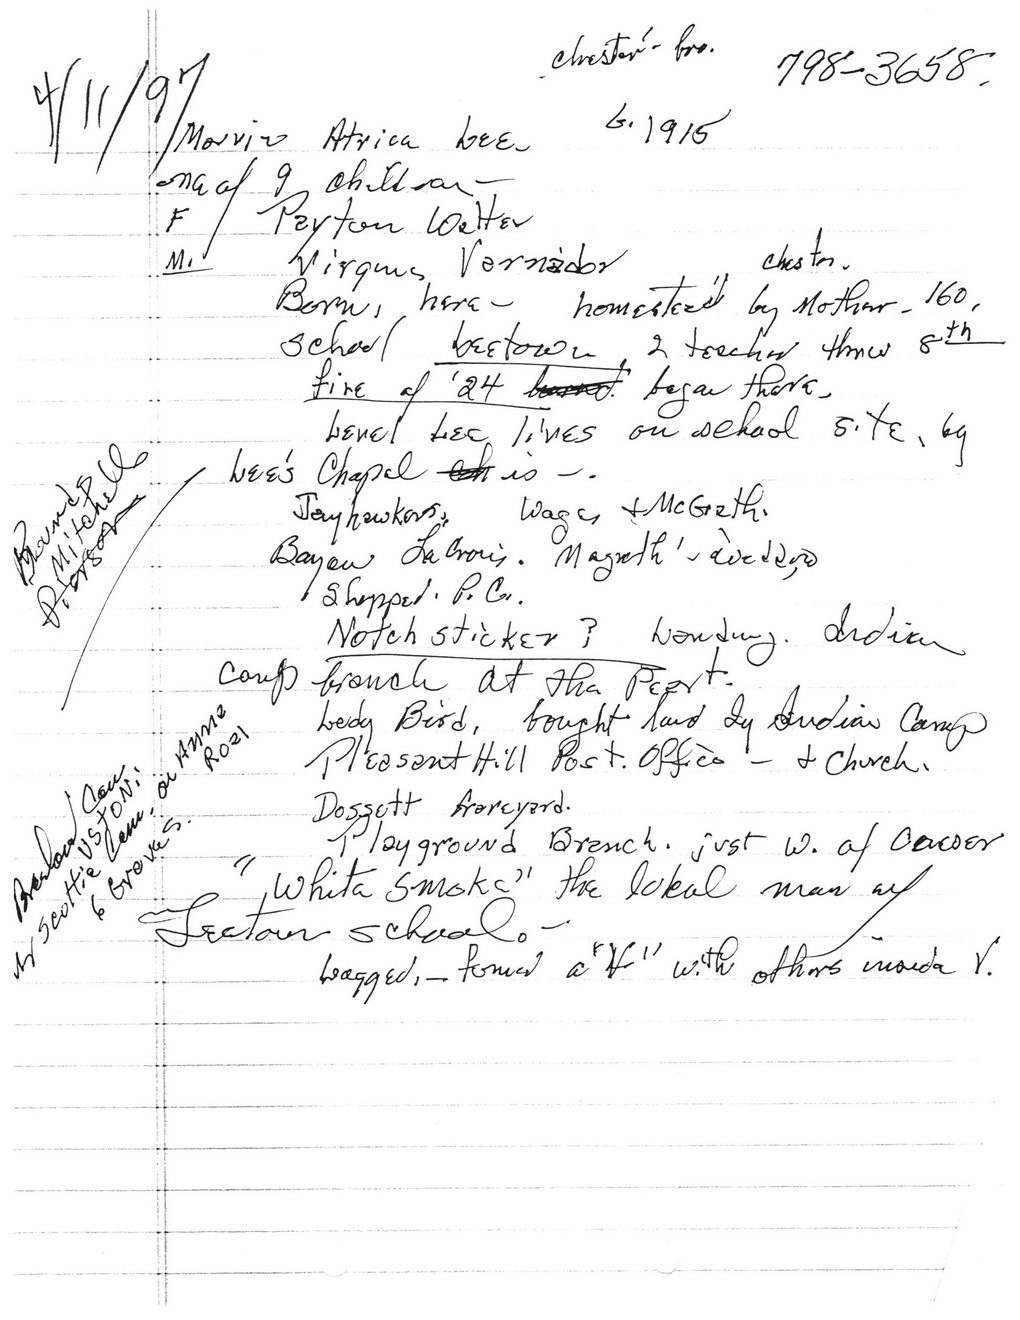 chester - bro.
798-3658.
4/11/97
Morris Atrica Lee. b. 1915
one of 9 children -
F Peyton Walter
M. Virginia Varnador chester.
Born, here - "homestead" by Mother - 160.
school Leetown, 2 teacher threw 8th
fire of '24 burned began there.
Level Lee lives on school site, by
Lee's Chapel ch is -.
Jayhawkers, Wages + McGrath.
Bayou LaCroix. Magrath's
Shopped. P.C.
Notch sticker? Landing. Indian
Camp branch at the Pearl.
Lady Bird, bought land by Indian Camp
Pleasant Hill Post. Office - + Church.
Dossett Graveyard.
Playground Branch. just w. of
"White Smoke" the local man of
Leetown school. -
Wagged, - formed a "V" with others inside V.
Bounds
Mitchell
Pierson
Cem
by Scottie USTON:
Cem. on Anner Road
6 Graves.